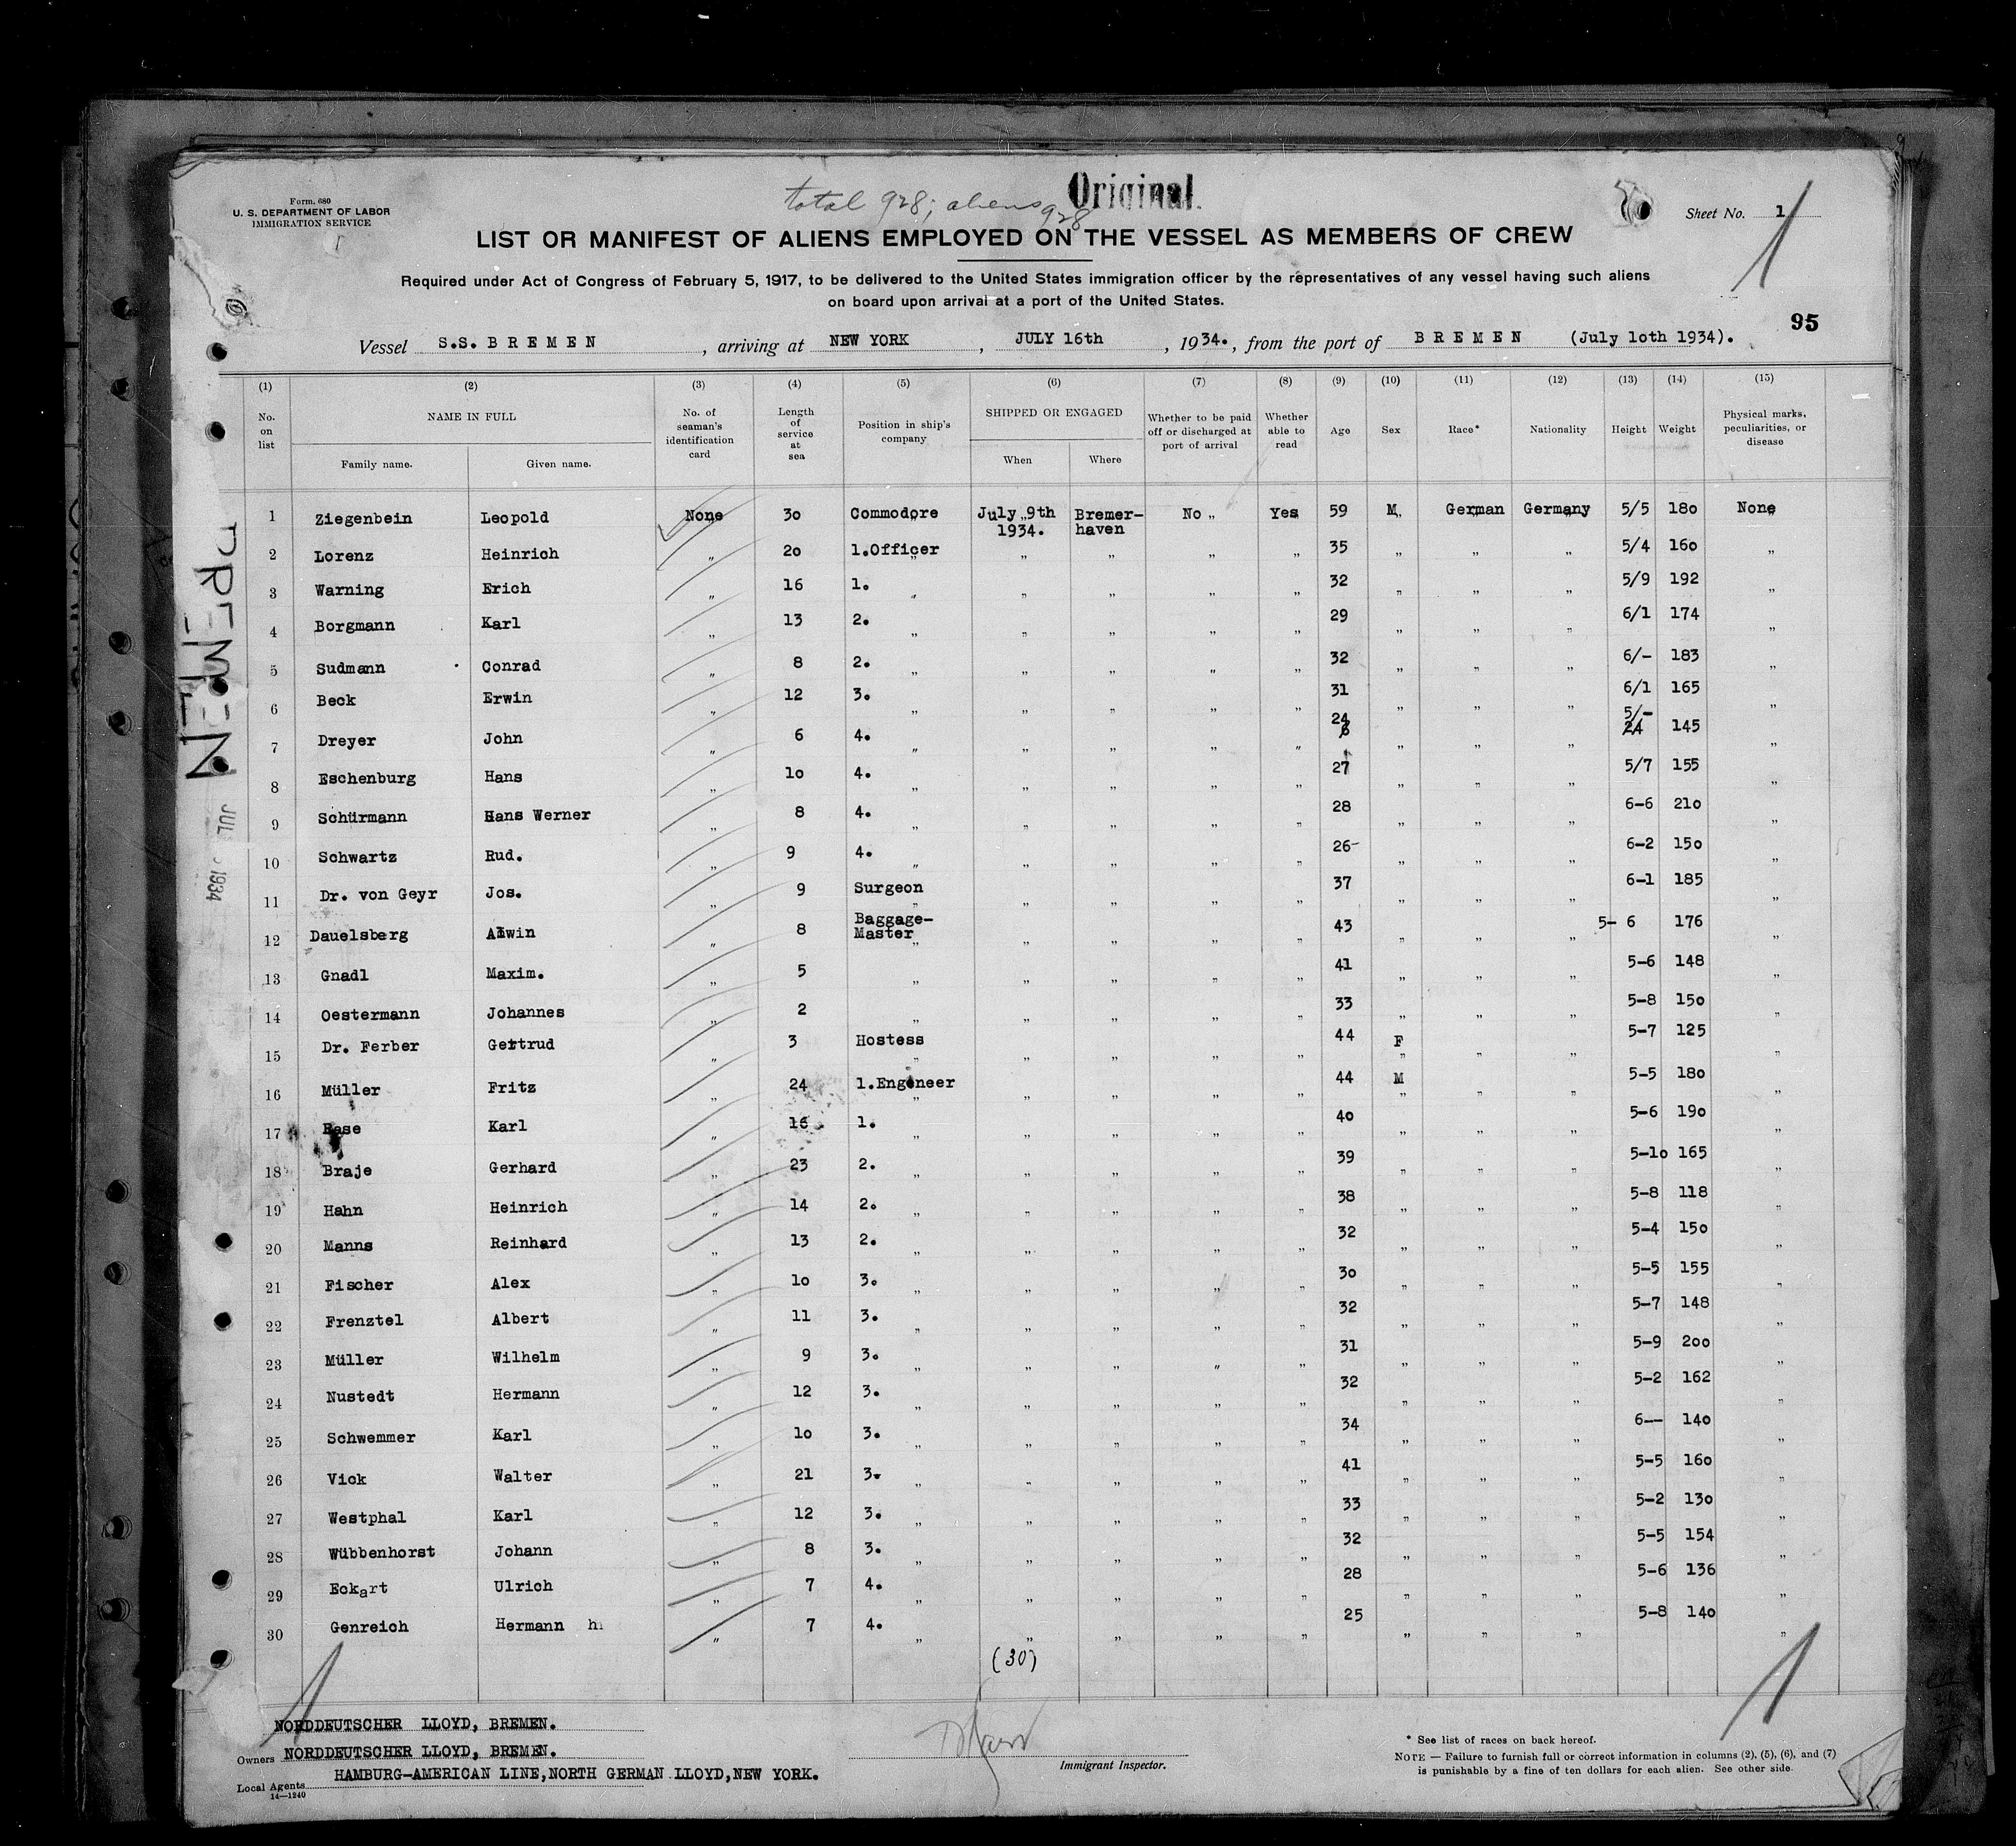 Form. 680
U. S. DEPARTMENT OF LABOR
IMMIGRATION SERVICE
total 928; aliens 928
Original
Sheet No. 1
1
LIST OR MANIFEST OF ALIENS EMPLOYED ON THE VESSEL AS MEMBERS OF CREW
Required under Act of Congress of February 5, 1917, to be delivered to the United States immigration officer by the representatives of any vessel having such aliens
on board upon arrival at a port of the United States.
95
Vessel S.S. B R E M E N , arriving at NEW YORK , JULY 16th , 1934. , from the port of B R E M E N (July 10th 1934).
(1) (2) (3) (4) (5) (6) (7) (8) (9) (10) (11) (12) (13) (14) (15)
No. on list NAME IN FULL Family name. Given name. No. of seaman's identification card Length of service at sea Position in ship's company SHIPPED OR ENGAGED When Where Whether to be paid off or discharged at port of arrival Whether able to read Age Sex Race* Nationality Height Weight Physical marks, peculiarities, or disease
1 Ziegenbein Leopold None 30 Commodore July 9th 1934. Bremer-haven No „ Yes 59 M German Germany 5/5 180 None
2 Lorenz Heinrich „ 20 1.Officer „ „ „ „ 35 „ „ „ 5/4 160 „
3 Warning Erich „ 16 1. „ „ „ „ „ 32 „ „ „ 5/9 192 „
4 Borgmann Karl „ 13 2. „ „ „ „ „ 29 „ „ „ 6/1 174 „
5 Sudmann Conrad „ 8 2. „ „ „ „ „ 32 „ „ „ 6/- 183 „
6 Beck Erwin „ 12 3. „ „ „ „ „ 31 „ „ „ 6/1 165 „
7 Dreyer John „ 6 4. „ „ „ „ „ 24 „ „ „ 5/- 24 145 „
8 Eschenburg Hans „ 10 4. „ „ „ „ „ 27 „ „ „ 5/7 155 „
9 Schürmann Hans Werner „ 8 4. „ „ „ „ „ 28 „ „ „ 6-6 210 „
10 Schwartz Rud. „ 9 4. „ „ „ „ „ 26- „ „ „ 6-2 150 „
11 Dr. von Geyr Jos. „ 9 Surgeon „ „ „ „ „ 37 „ „ „ 6-1 185 „
12 Dauelsberg Alwin „ 8 Baggage-Master „ „ „ „ „ 43 „ „ „ 5- 6 176 „
13 Gnadl Maxim. „ 5 „ „ „ „ „ 41 „ „ „ 5-6 148 „
14 Oestermann Johannes „ 2 „ „ „ „ „ 33 „ „ „ 5-8 150 „
15 Dr. Ferber Gertrud „ 3 Hostess „ „ „ „ „ 44 F „ „ „ 5-7 125 „
16 Müller Fritz „ 24 1.Engeneer „ „ „ „ „ 44 M „ „ „ 5-5 180 „
17 Rase Karl „ 16 1. „ „ „ „ „ 40 „ „ „ 5-6 190 „
18 Braje Gerhard „ 23 2. „ „ „ „ „ 39 „ „ „ 5-10 165 „
19 Hahn Heinrich „ 14 2. „ „ „ „ „ 38 „ „ „ 5-8 118 „
20 Manns Reinhard „ 13 2. „ „ „ „ „ 32 „ „ „ 5-4 150 „
21 Fischer Alex „ 10 3. „ „ „ „ „ 30 „ „ „ 5-5 155 „
22 Frenztel Albert „ 11 3. „ „ „ „ „ 32 „ „ „ 5-7 148 „
23 Müller Wilhelm „ 9 3. „ „ „ „ „ 31 „ „ „ 5-9 200 „
24 Nustedt Hermann „ 12 3. „ „ „ „ „ 32 „ „ „ 5-2 162 „
25 Schwemmer Karl „ 10 3. „ „ „ „ „ 34 „ „ „ 6-- 140 „
26 Vick Walter „ 21 3. „ „ „ „ „ 41 „ „ „ 5-5 160 „
27 Westphal Karl „ 12 3. „ „ „ „ „ 33 „ „ „ 5-2 130 „
28 Wübbenhorst Johann „ 8 3. „ „ „ „ „ 32 „ „ „ 5-5 154 „
29 Eckart Ulrich „ 7 4. „ „ „ „ „ 28 „ „ „ 5-6 136 „
30 Genreich Hermann h „ 7 4. „ „ „ „ „ 25 „ „ „ 5-8 140 „
(30)
BREMEN
JUL 1934
1
1
NORDDEUTSCHER LLOYD, BREMEN.
Owners NORDDEUTSCHER LLOYD, BREMEN.
Local Agents HAMBURG-AMERICAN LINE,NORTH GERMAN LLOYD,NEW YORK.
14—1240
Immigrant Inspector.
* See list of races on back hereof.
NOTE — Failure to furnish full or correct information in columns (2), (5), (6), and (7)
is punishable by a fine of ten dollars for each alien. See other side.